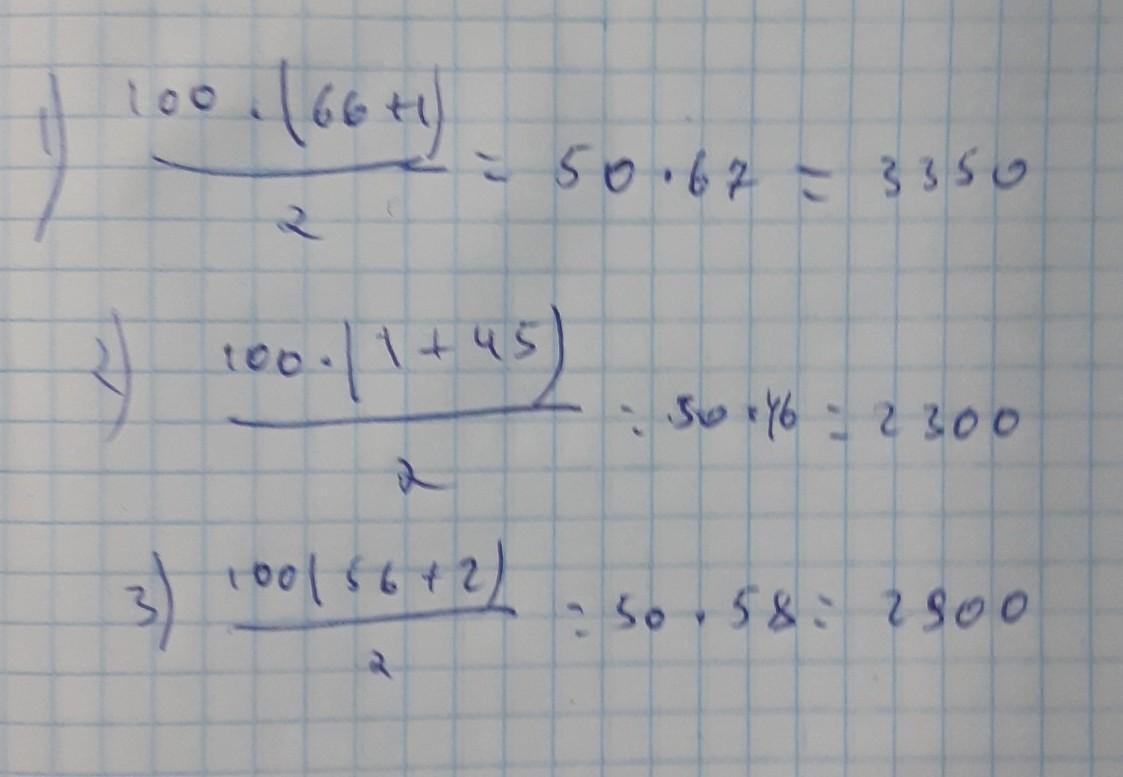 1) 100 · (66 + 1) / 2 = 50 · 67 = 3350
2) 100 · (1 + 45) / 2 = 50 · 46 = 2300
3) 100 (56 + 2) / 2 = 50 · 58 = 2900